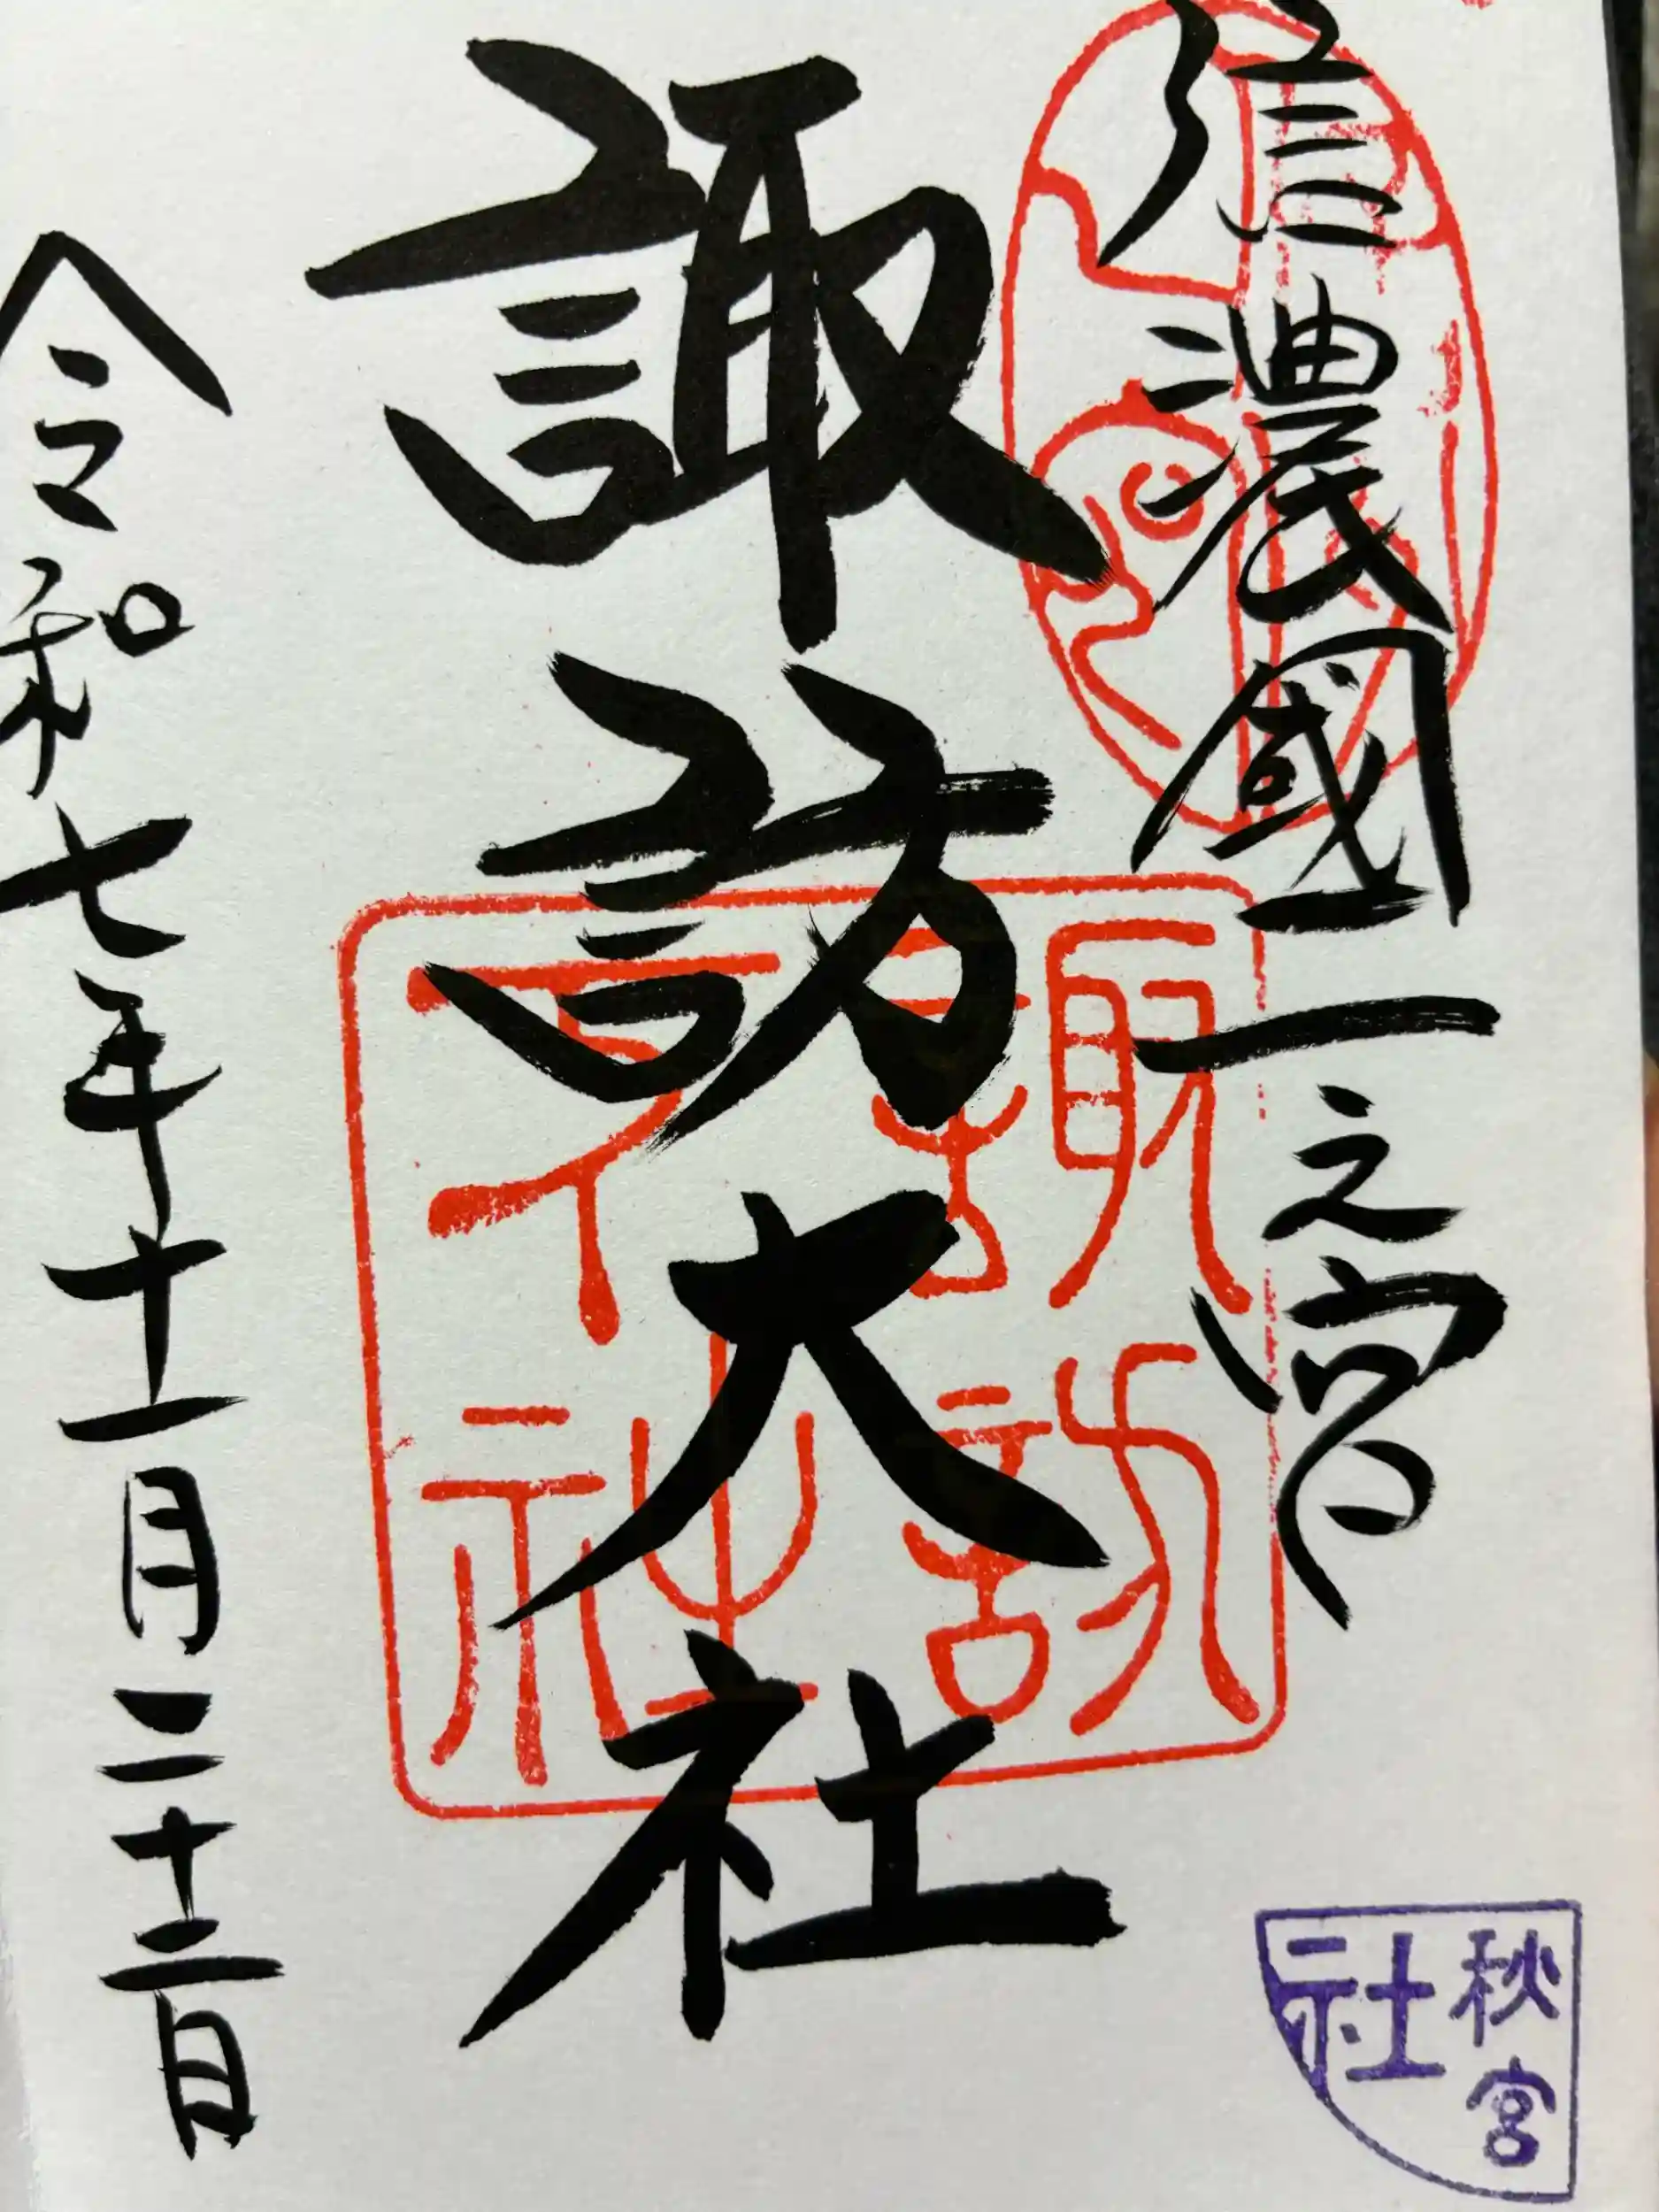 信濃國一之宮
諏訪大社
令和七年十一月二十二日
諏訪
下社
秋宮
社